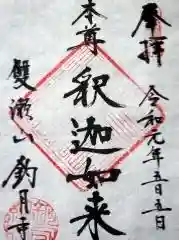 奉拝
令和元年五月五日
本尊
釈迦如来
雙瀬山
釣月寺